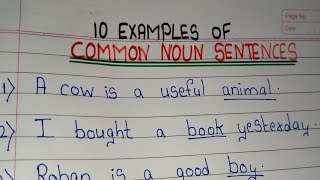 Page No.
Date
10 EXAMPLES OF
COMMON NOUN SENTENCES
1) A cow is a useful animal.
2) I bought a book yesterday.
Rohan is a good boy.